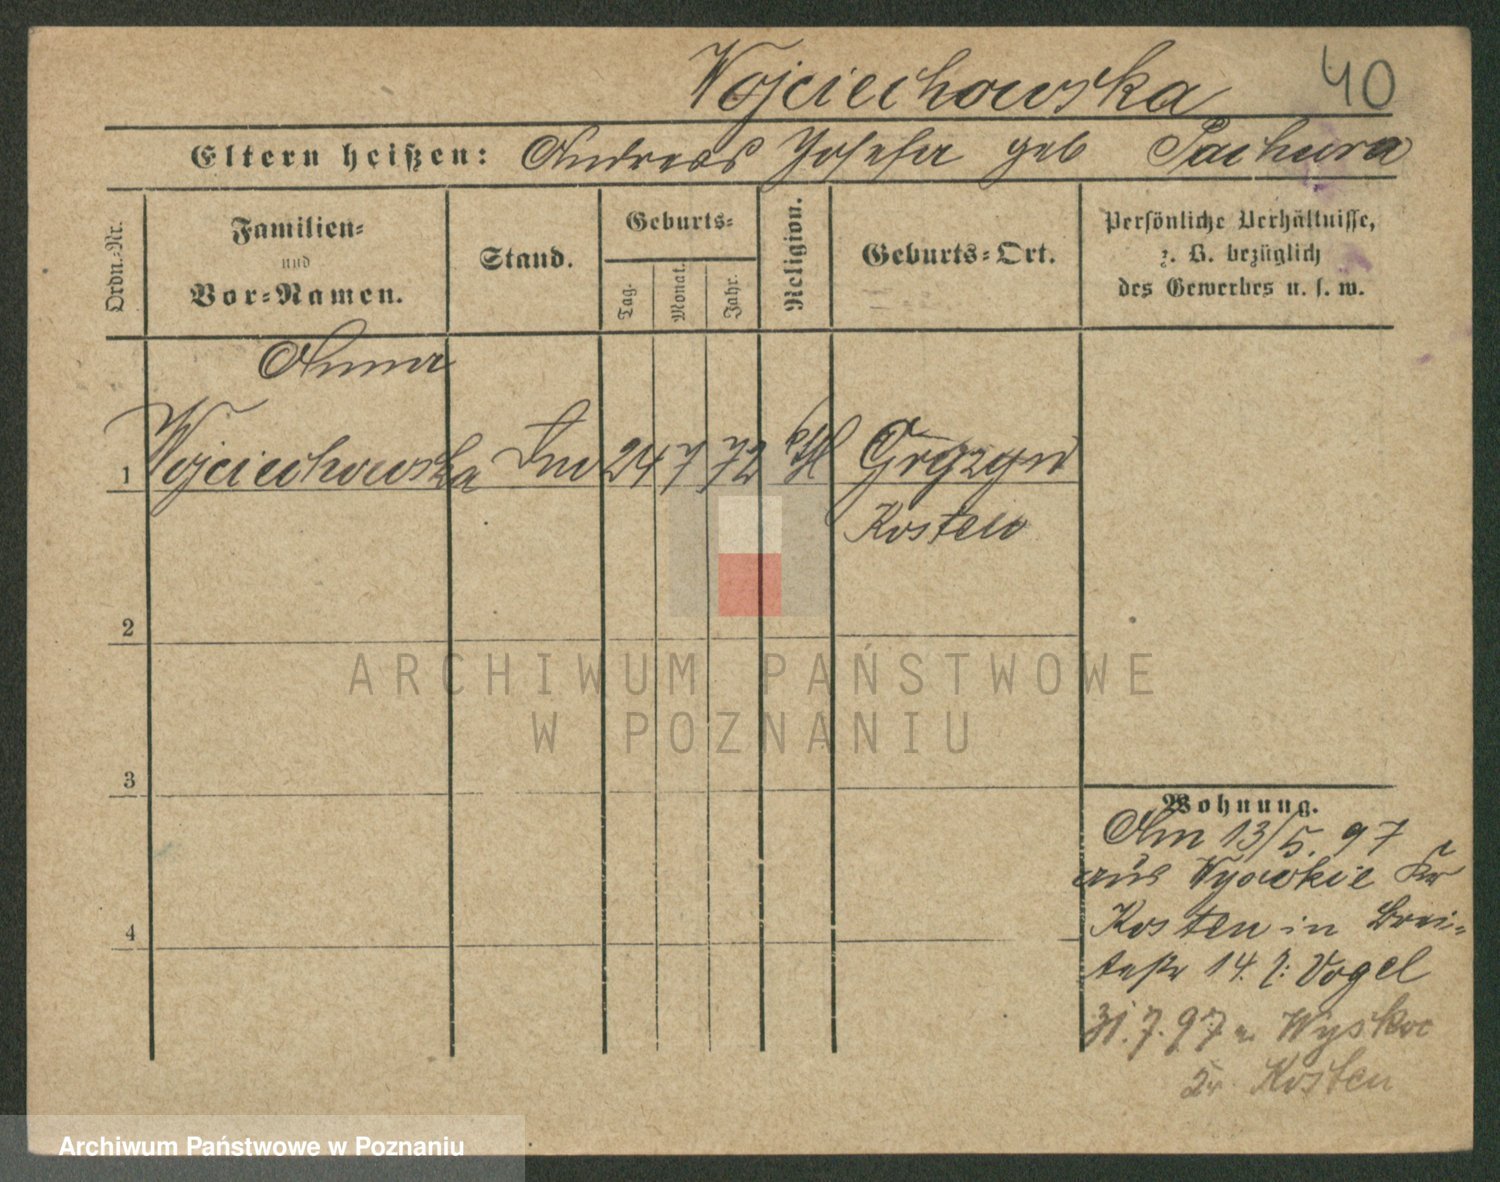 Wojciechowska 40
Eltern heißen: Andreas Josefa geb Pachura
Ordn.-Nr.
Familien-
und
Vor-Namen.
Stand.
Geburts-
Tag.
Monat.
Jahr.
Religion.
Geburts-Ort.
Persönliche Verhältnisse,
z. B. bezüglich
des Gewerbes u. s. w.
Anna
1 Wojciechowska 24 7 72 kth
Kosten
2
3
4
Wohnung.
Am 13/5. 97
aus Kr
Kosten in Brei-
testr 14. Vogel
31.7.97 n. Wyskoc
Kr. Kosten
ARCHIWUM PAŃSTWOWE
W POZNANIU
Archiwum Państwowe w Poznaniu